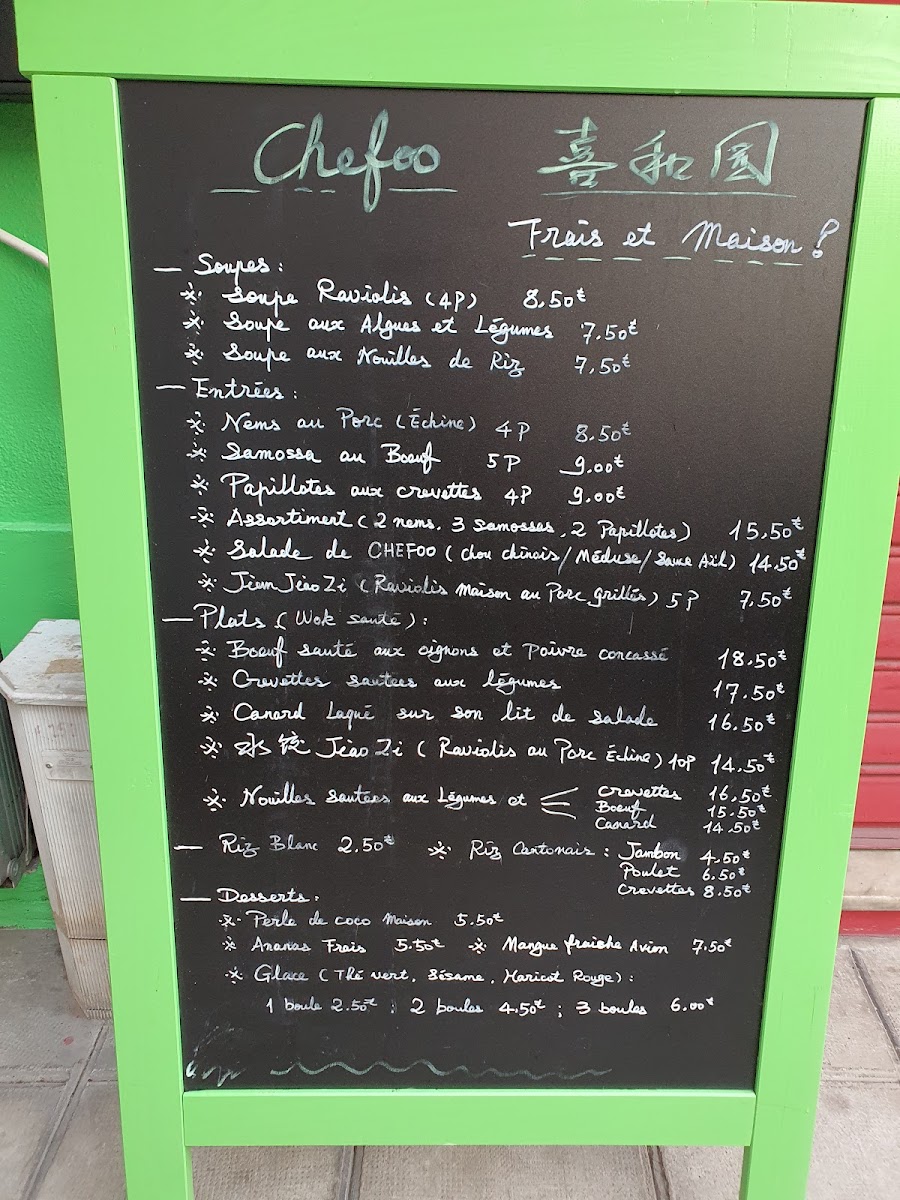 Chefoo 喜和园
Frais et Maison !
— Soupes :
※ Soupe Raviolis (4P) 8.50€
※ Soupe aux Algues et Légumes 7.50€
※ Soupe aux Nouilles de Riz 7.50€
— Entrées :
※ Nems au Porc (Échine) 4P 8.50€
※ Samossa au Boeuf 5P 9.00€
※ Papillotes aux crevettes 4P 9.00€
※ Assortiment (2 nems, 3 samossas, 2 Papillotes) 15,50€
※ Salade de CHEFOO (chou chinois/Méduse/Sauce Ail) 14.50€
※ Jian Jiao Zi (Raviolis Maison au Porc grillés) 5P 7.50€
— Plats (Wok santé) :
※ Boeuf sauté aux oignons et Poivre concassé 18.50€
※ Crevettes sautées aux légumes 17.50€
※ Canard Laqué sur son lit de salade 16.50€
※ 水饺 Jiao Zi (Raviolis au Porc Échine) 10P 14.50€
※ Nouilles sautées aux Légumes et crevettes 16,50€
Boeuf 15.50€
Canard 14.50€
— Riz Blanc 2.50€ ※ Riz Cantonais : Jambon 4.50€
Poulet 6.50€
Crevettes 8.50€
— Desserts :
※ Perle de coco Maison 5.50€
※ Ananas Frais 5.50€ ※ Mangue fraîche Avion 7.50€
※ Glace (Thé vert, Sésame, Haricot Rouge) :
1 boule 2.50€ ; 2 boules 4.50€ ; 3 boules 6.00€